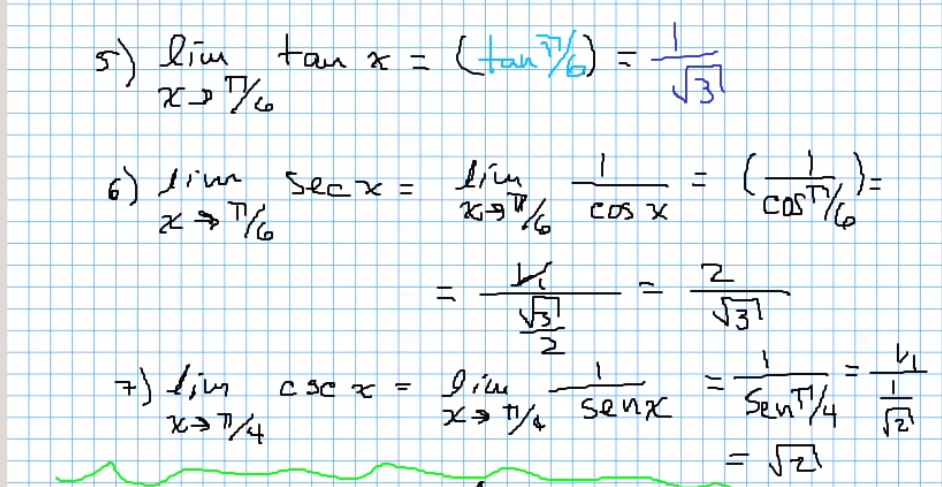 5) lim x→π/6 tan x = (tan π/6) = 1/√3
6) lim x→π/6 sec x = lim x→π/6 1/cos x = (1/cos π/6) =
= 1/1 / √3/2 = 2/√3
7) lim x→π/4 csc x = lim x→π/4 1/sen x = 1/sen π/4 = 1/1 / 1/√2
= √2